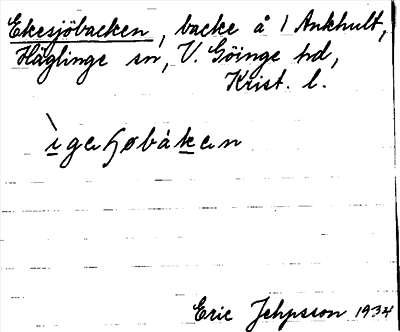 Ekesjöbacken, backe å 1 Ankhult,
Häglinge sn, V. Göinge hd,
Krist. l.
ìgeʃøbåken
Eric Jehpsson 1934